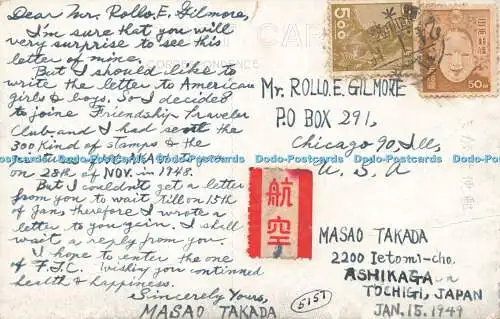 Dear Mr. Rollo. E. Gilmore,
I'm sure that you will
very surprise to see this
letter of mine.
But I should like to
write the letter to American
girls & boys. So I decided
to joine Friendship Traveler
Club, and I had sent the
300 Kind of stamps & the
on 28th of NOV. in 1948.
But I couldn't get a letter
from you to wait till on 15th
of Jan, therefore I wrote a
letter to you again. I shall
wait a reply from you.
I hope to enter the one
of F.T.C. Wishing you continued
health & happiness.
Sincerely Yours,
MASAO TAKADA
CARD
CORRESPONDENCE
5.00
日本郵便
50
Mr. ROLLO. E. GILMORE
P.O BOX 291,
Chicago 90, Ill,
U. S. A
航空
MASAO TAKADA
2200 Ietomi-cho,
ASHIKAGA
TOCHIGI, JAPAN
JAN. 15. 1949
5157
Do-Postcards Do-Postcards Do-Postcards Do-Postcards Do-Postcards Do-Postcards